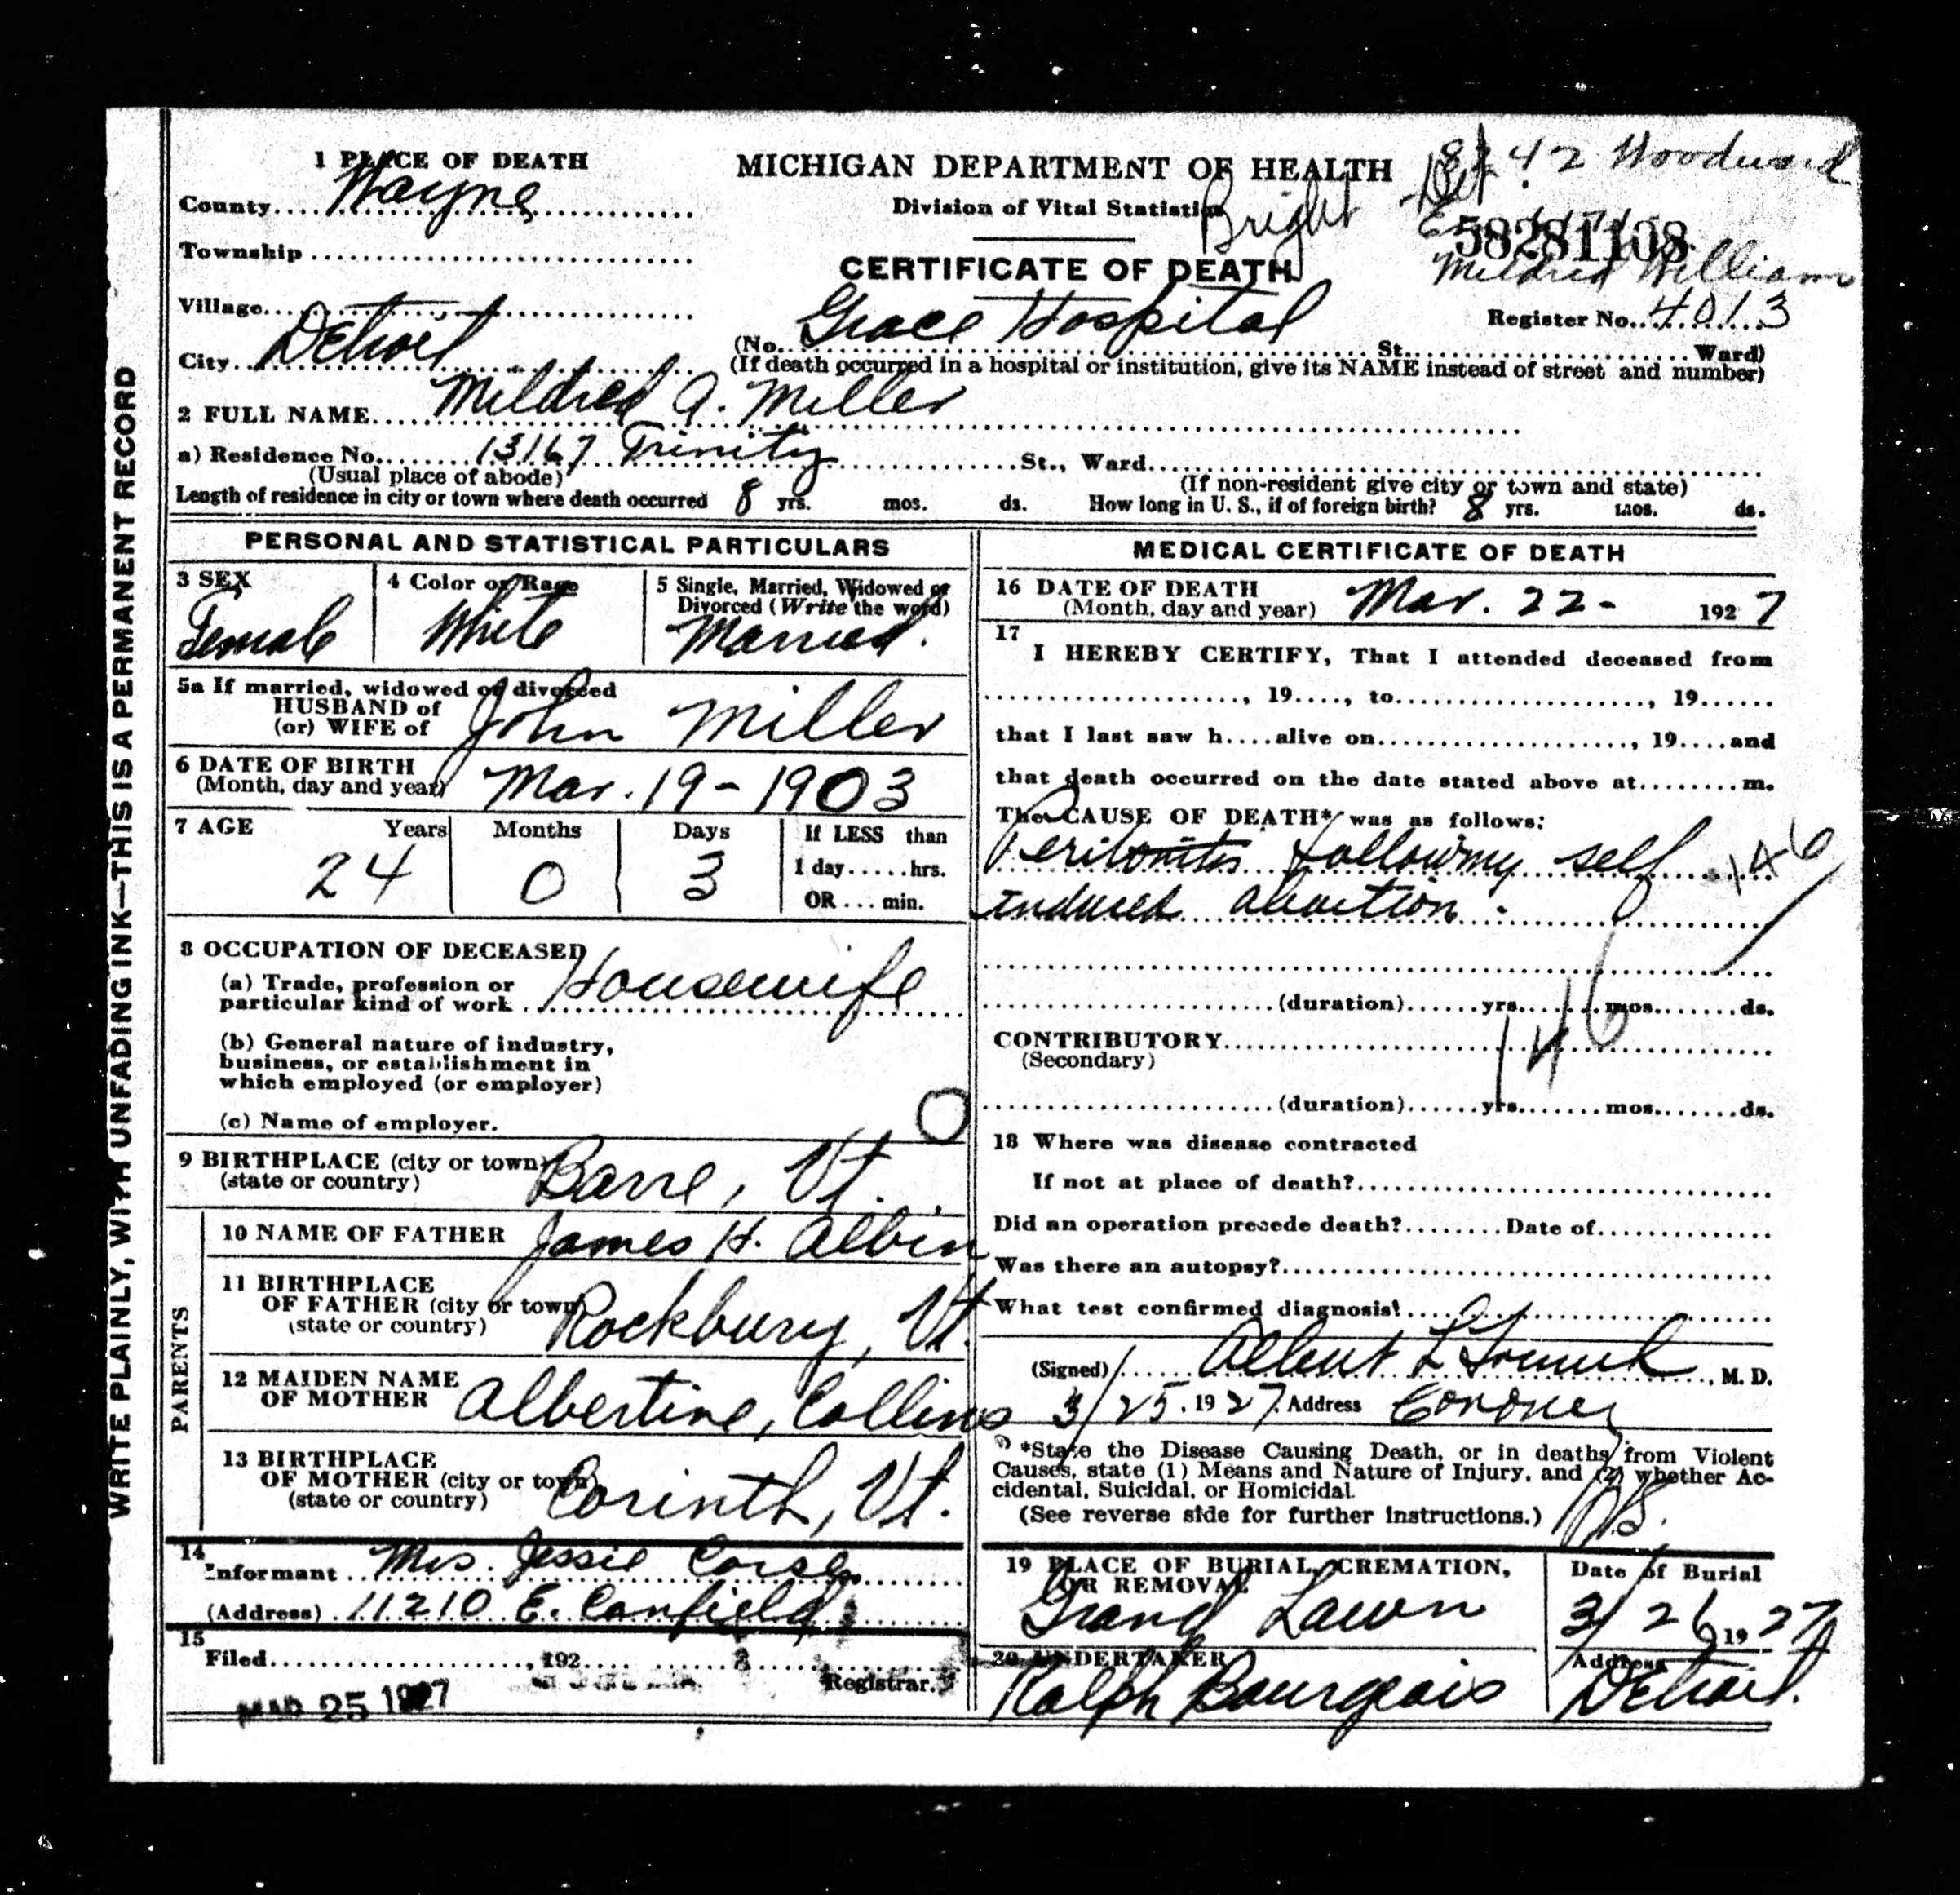 WRITE PLAINLY, WITH UNFADING INK—THIS IS A PERMANENT RECORD
8242 Woodward
1 PLACE OF DEATH
MICHIGAN DEPARTMENT OF HEALTH
County Wayne
Division of Vital Statistics
Bright
58281108
Township
CERTIFICATE OF DEATH
Mildred Williams
Village
Register No. 4013
City Detroit
(No. Grace Hospital St. Ward)
(If death occurred in a hospital or institution, give its NAME instead of street and number)
2 FULL NAME Mildred A. Miller
a) Residence No. 13167 Trinity St., Ward
(Usual place of abode)
(If non-resident give city or town and state)
Length of residence in city or town where death occurred 8 yrs. mos. ds. How long in U. S., if of foreign birth? 8 yrs. mos. ds.
PERSONAL AND STATISTICAL PARTICULARS
3 SEX
Female
4 Color or Race
White
5 Single, Married, Widowed or
Divorced (Write the word)
Married.
5a If married, widowed or divorced
HUSBAND of
(or) WIFE of
John Miller
6 DATE OF BIRTH
(Month, day and year)
Mar. 19 - 1903
7 AGE Years Months Days
24 0 3
If LESS than
1 day.....hrs.
OR ... min.
8 OCCUPATION OF DECEASED
(a) Trade, profession or
particular kind of work Housewife
(b) General nature of industry,
business, or establishment in
which employed (or employer)
(c) Name of employer.
9 BIRTHPLACE (city or town)
(state or country)
Barre, Vt.
PARENTS
10 NAME OF FATHER James H. Albin
11 BIRTHPLACE
OF FATHER (city or town)
(state or country)
Rockbury, Vt.
12 MAIDEN NAME
OF MOTHER Albertine, Collins
13 BIRTHPLACE
OF MOTHER (city or town)
(state or country)
Corinth, Vt.
14
Informant Mrs. Jessie Corse
(Address) 11210 E. Canfield
15
Filed, 192 Registrar.
MAR 25 1927
MEDICAL CERTIFICATE OF DEATH
16 DATE OF DEATH
(Month, day and year) Mar. 22 - 1927
17
I HEREBY CERTIFY, That I attended deceased from
, 19...., to, 19......
that I last saw h....alive on, 19....and
that death occurred on the date stated above at........m.
The CAUSE OF DEATH* was as follows:
Peritonitis following self
induced abortion.
146
(duration)......yrs.......mos.......ds.
146
CONTRIBUTORY
(Secondary)
(duration)......yrs.......mos.......ds.
18 Where was disease contracted
If not at place of death?
Did an operation precede death?........Date of
Was there an autopsy?
What test confirmed diagnosis?
(Signed) Albert L, M. D.
3/25. 1927. Address Coroner
*State the Disease Causing Death, or in deaths from Violent
Causes, state (1) Means and Nature of Injury, and (2) whether Ac-
cidental, Suicidal, or Homicidal.
(See reverse side for further instructions.)
19 PLACE OF BURIAL, CREMATION,
OR REMOVAL
Grand Lawn
Date of Burial
3/26 1927
20 UNDERTAKER
Ralph Bourgeois
Address
Detroit.